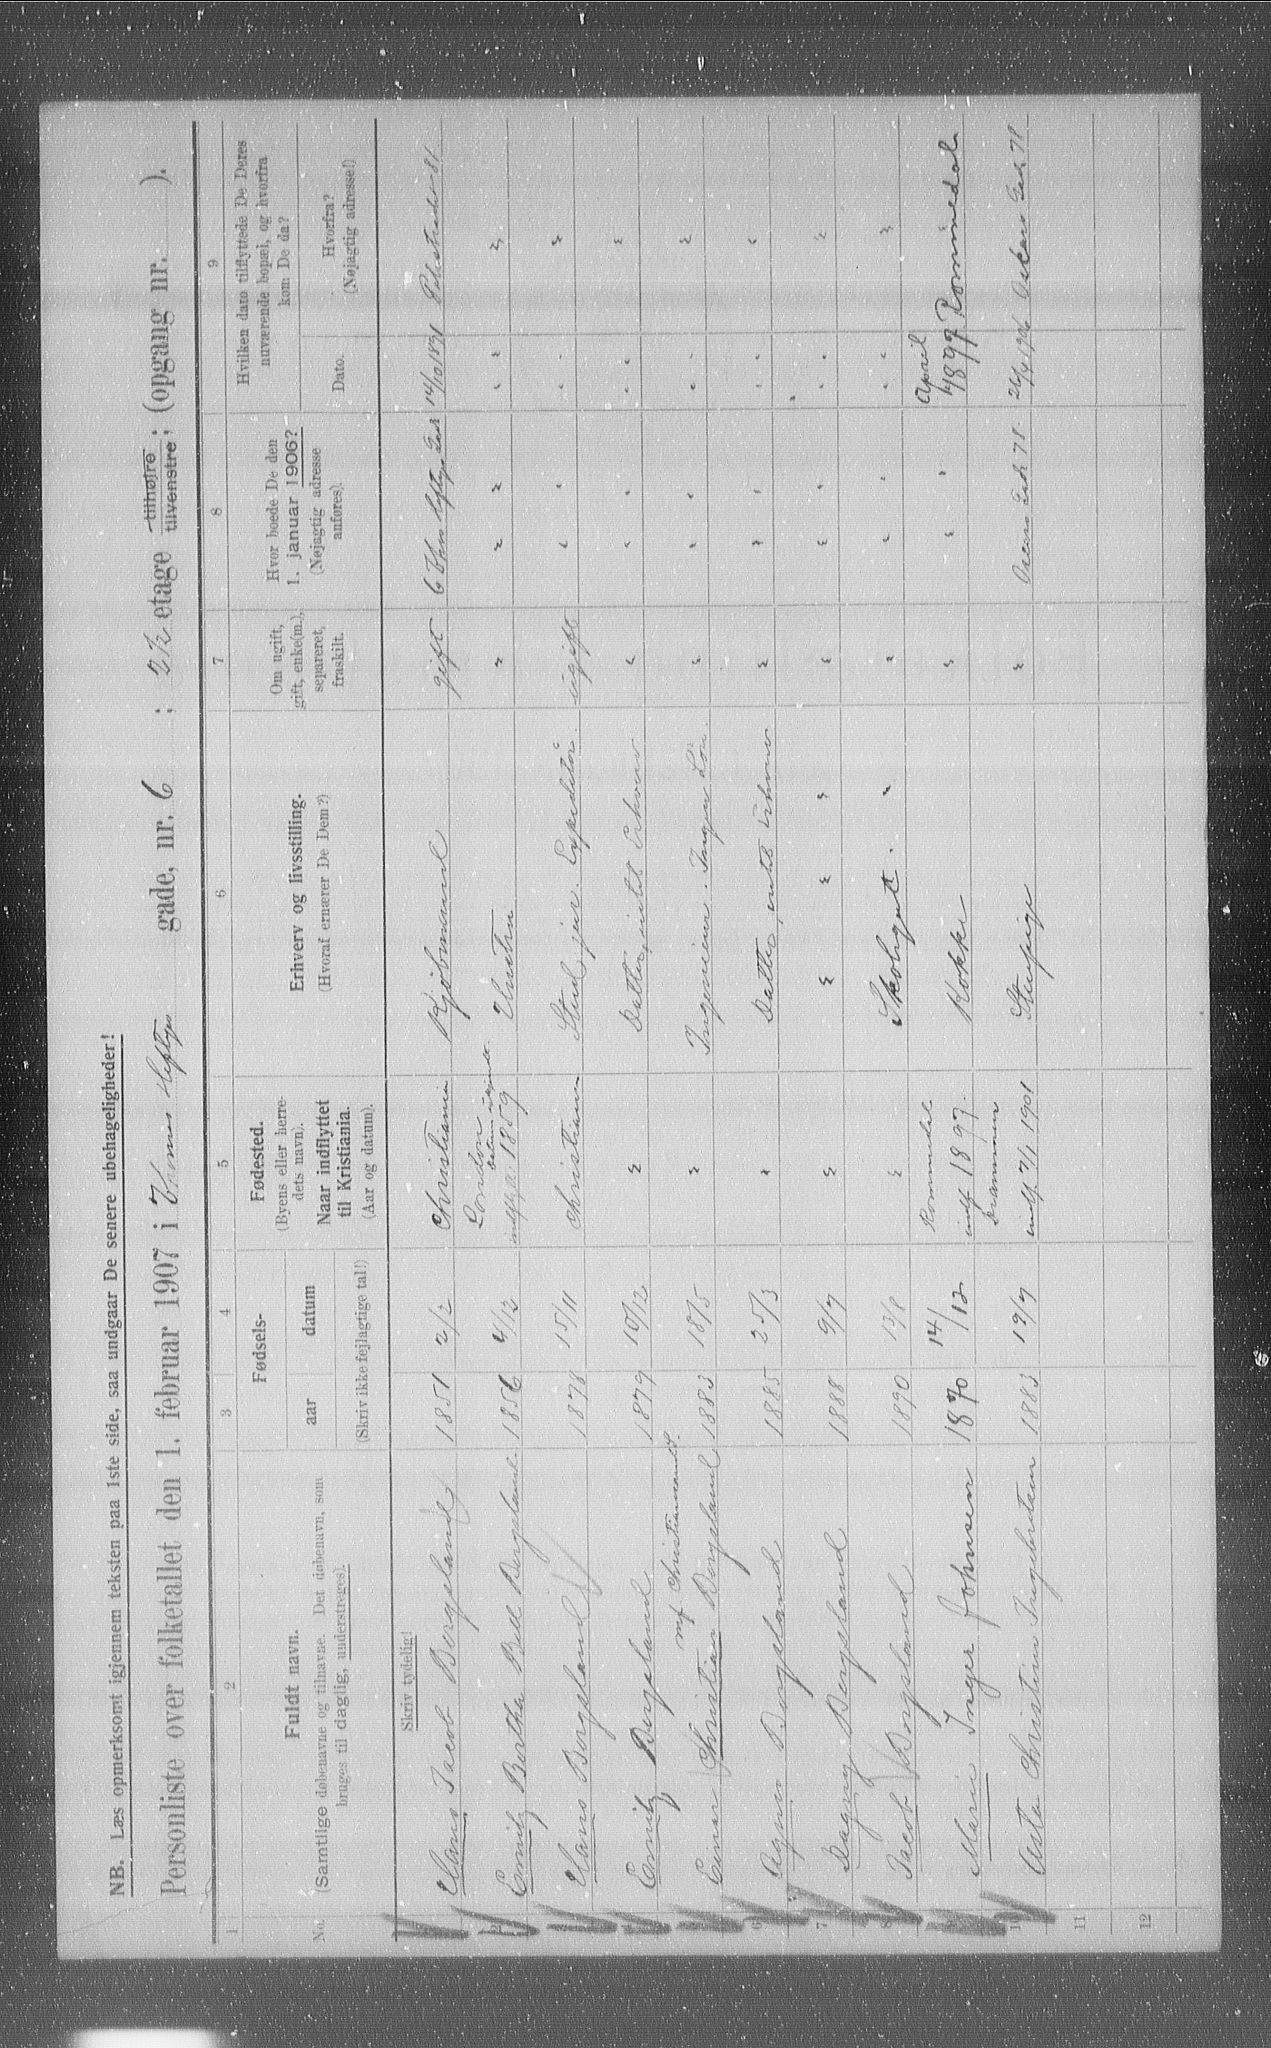 NB. Læs opmerksomt igjennem teksten paa 1ste side, saa undgaar De senere ubehageligheder!
Personliste over folketallet den 1. februar 1907 i Thomas Heftyes gade, nr. 6 ; 2 1/2 etage tilhøjre tilvenstre; (opgang nr. ).
1 2 3 4 5 6 7 8 9
No.
Fuldt navn.
(Samtlige døbenavne og tilnavne. Det døbenavn, som
bruges til daglig, understreges).
Fødsels-
aar datum
(Skriv ikke fejlagtige tal!)
Fødested.
(Byens eller herre-
dets navn).
Naar indflyttet
til Kristiania.
(Aar og datum).
Erhverv og livsstilling.
(Hvoraf ernærer De Dem?)
Om ugift,
gift, enke(m.),
separeret,
fraskilt.
Hvor boede De den
1. januar 1906?
(Nøjagtig adresse
anføres).
Hvilken dato tilflyttede De Deres
nuværende bopæl, og hvorfra
kom De da?
Dato.
Hvorfra?
(Nøjagtig adresse!)
Skriv tydelig!
Hans Jacob Bergsland 1851 2/2 Christiania Kjøbmand gift 6 Thos Heftyes Gade 14/10 1891
2 Emily Bertha Bell Bergsland 1856 4/12 London indfl. 1859 Hustru " " " " " "
Hans Bergsland 1878 15/11 Christiania Stud. jur. Expeditør ugift " " " " "
Emily Bergsland 1879 10/12 " Datter, intet Erhverv " " " " " "
mf Christiansand.
Einar Christian Bergsland 1883 18/5 " Ingeniør. Ingen Løn " " " " " "
6 Agnes Bergsland 1885 25/3 " Datter, intet Erhverv " " " " " "
7 Dagny Bergsland 1888 9/7 " " " " " " " " " "
8 Jacob Bergsland 1890 13/8 " Skolegut. " " " " " "
Marie Inger Johnsen 1870 14/12 Rommedal indf 1897. Kokke " " " April 1897 Rommedal
10 Asta Christine Ingebretsen 1883 19/7 Drammen indfl. 7/1 1901 Stuepige " Oscars Gade 78. 24/4 1906 Oscars Gade 78
11
12